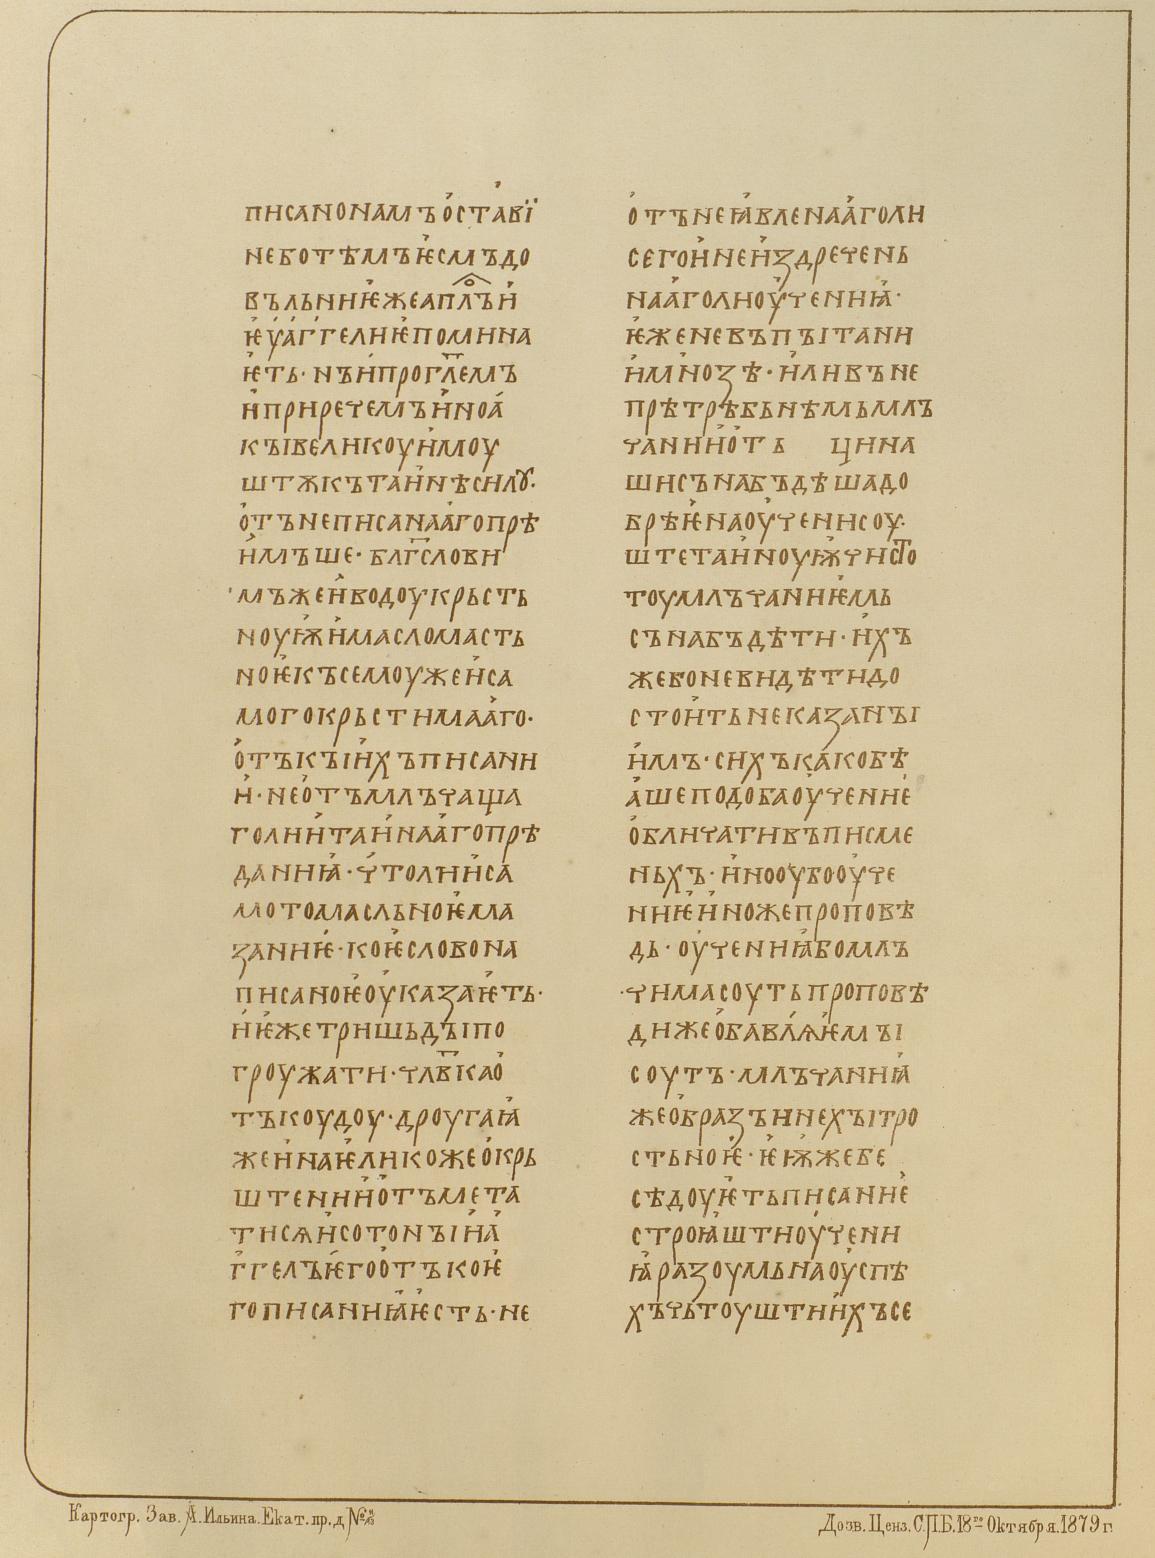 писанонамъоставї
неботѣмъѥсмъдо
въльниѥжеаплъи
ѥуаггелиѥпомина
ѥть·нъипроглемъ
иприречемъиноа
къівеликоуимоу
штѫкътаинѣсилꙋ·
отънеписанаагопрѣ
имъше·блгслови
мъжеиводоукрьсть
ноуѭимасломасть
ноѥкъсемоужеиса
могокрьстимааго·
откъіихъписани
и·неотъмлъчаща
голиитаинаагопрѣ
данниꙗ·чтолииса
мотомасльноѥма
заниѥ·коѥсловона
писаноѥоуказаѥть·
иѥжетришьдъіпо
гроужати·члвкао
тъкоудоу·дроугаꙗ
жеинаѥликожеокрь
штениіотъмета
тисѧисотонъіиа
ггелъѥгоотъкоѥ
гописанниꙗѥсть·не
отънеꙗвленааголи
сегоинеиздречень
нааголиоучениꙗ·
ѥженевъпъітани
имнозѣ·иливъне
прѣтрѣбьнѣмьмлъ
чаниіоть цина
шисънабъдѣшадо
брѣѥнаоученисоу·
штетаиноуѭчисто
тоумлъчаниѥмь
сънабъдѣти·ихъ
жебоневидѣтидо
стоитьнеказанъі
имъ·сихъкакобѣ
ашеподобаоучениѥ
обличативъписме
ньхъ·инооубооуче
ниѥиножепроповѣ
дь·оучениꙗбомлъ
·чимасоутьпроповѣ
дижеобавлѧѥмъі
соутъ·млъчаниꙗ
жеобразъинехъітро
стьноѥ·ѥѭжебе
сѣдоуѥтьписаниѥ
строꙗштиоучени
ꙗразоумьнаоуспѣ
хъчьтоуштиихъсе
Картогр. Зав. А. Ильина. Екат. пр. д.
Дозв. Ценз. С.П.Б. 18го Октября. 1879 г.